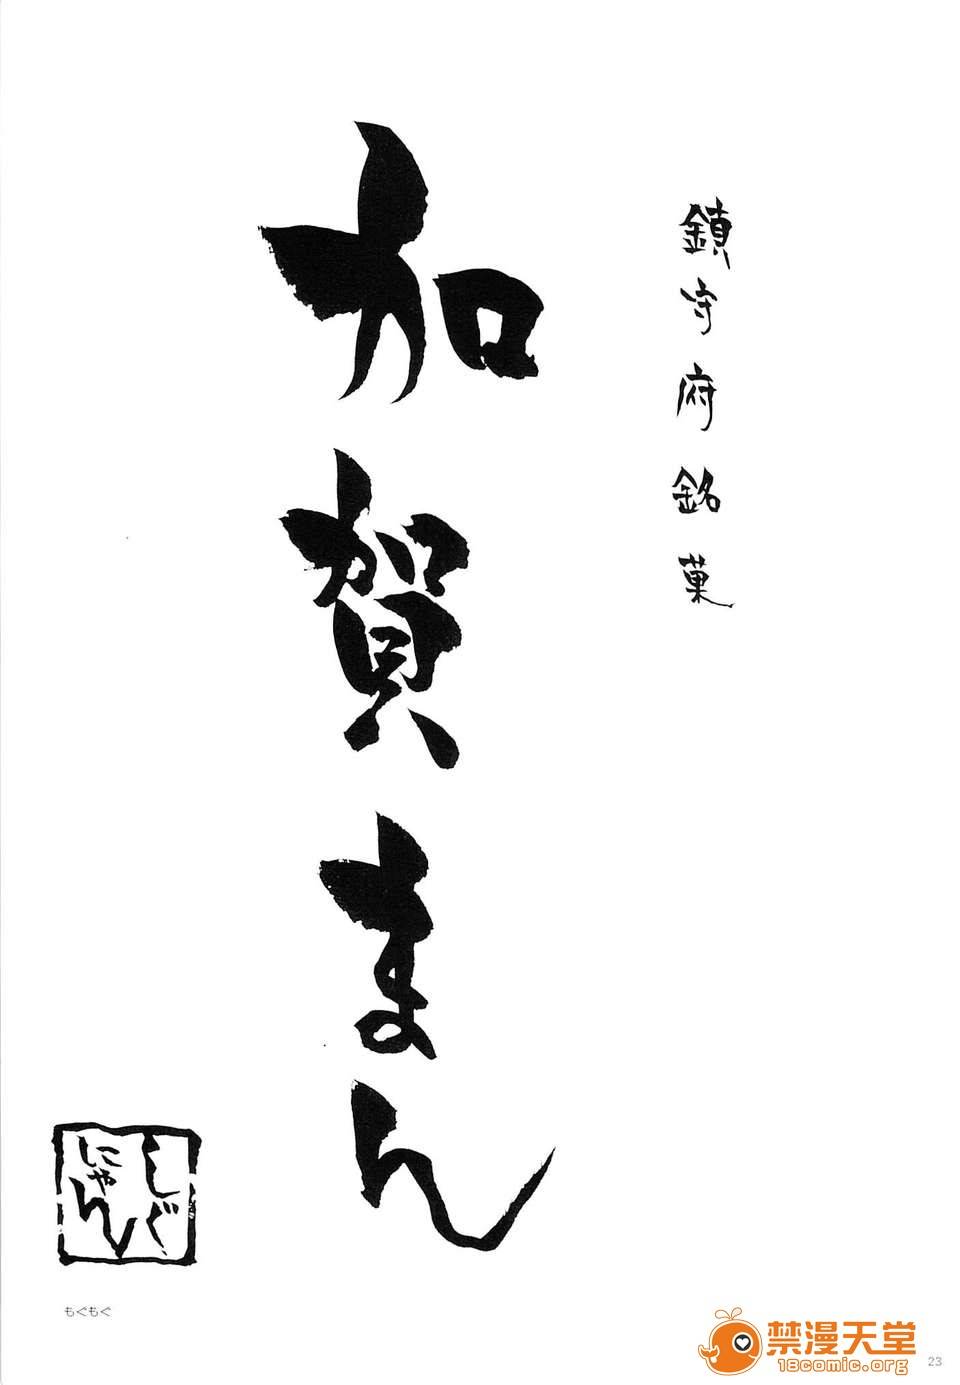 鎮守府銘菓
加賀まん
しぐ
にゃん
もぐもぐ
禁漫天堂
18comic.org
23